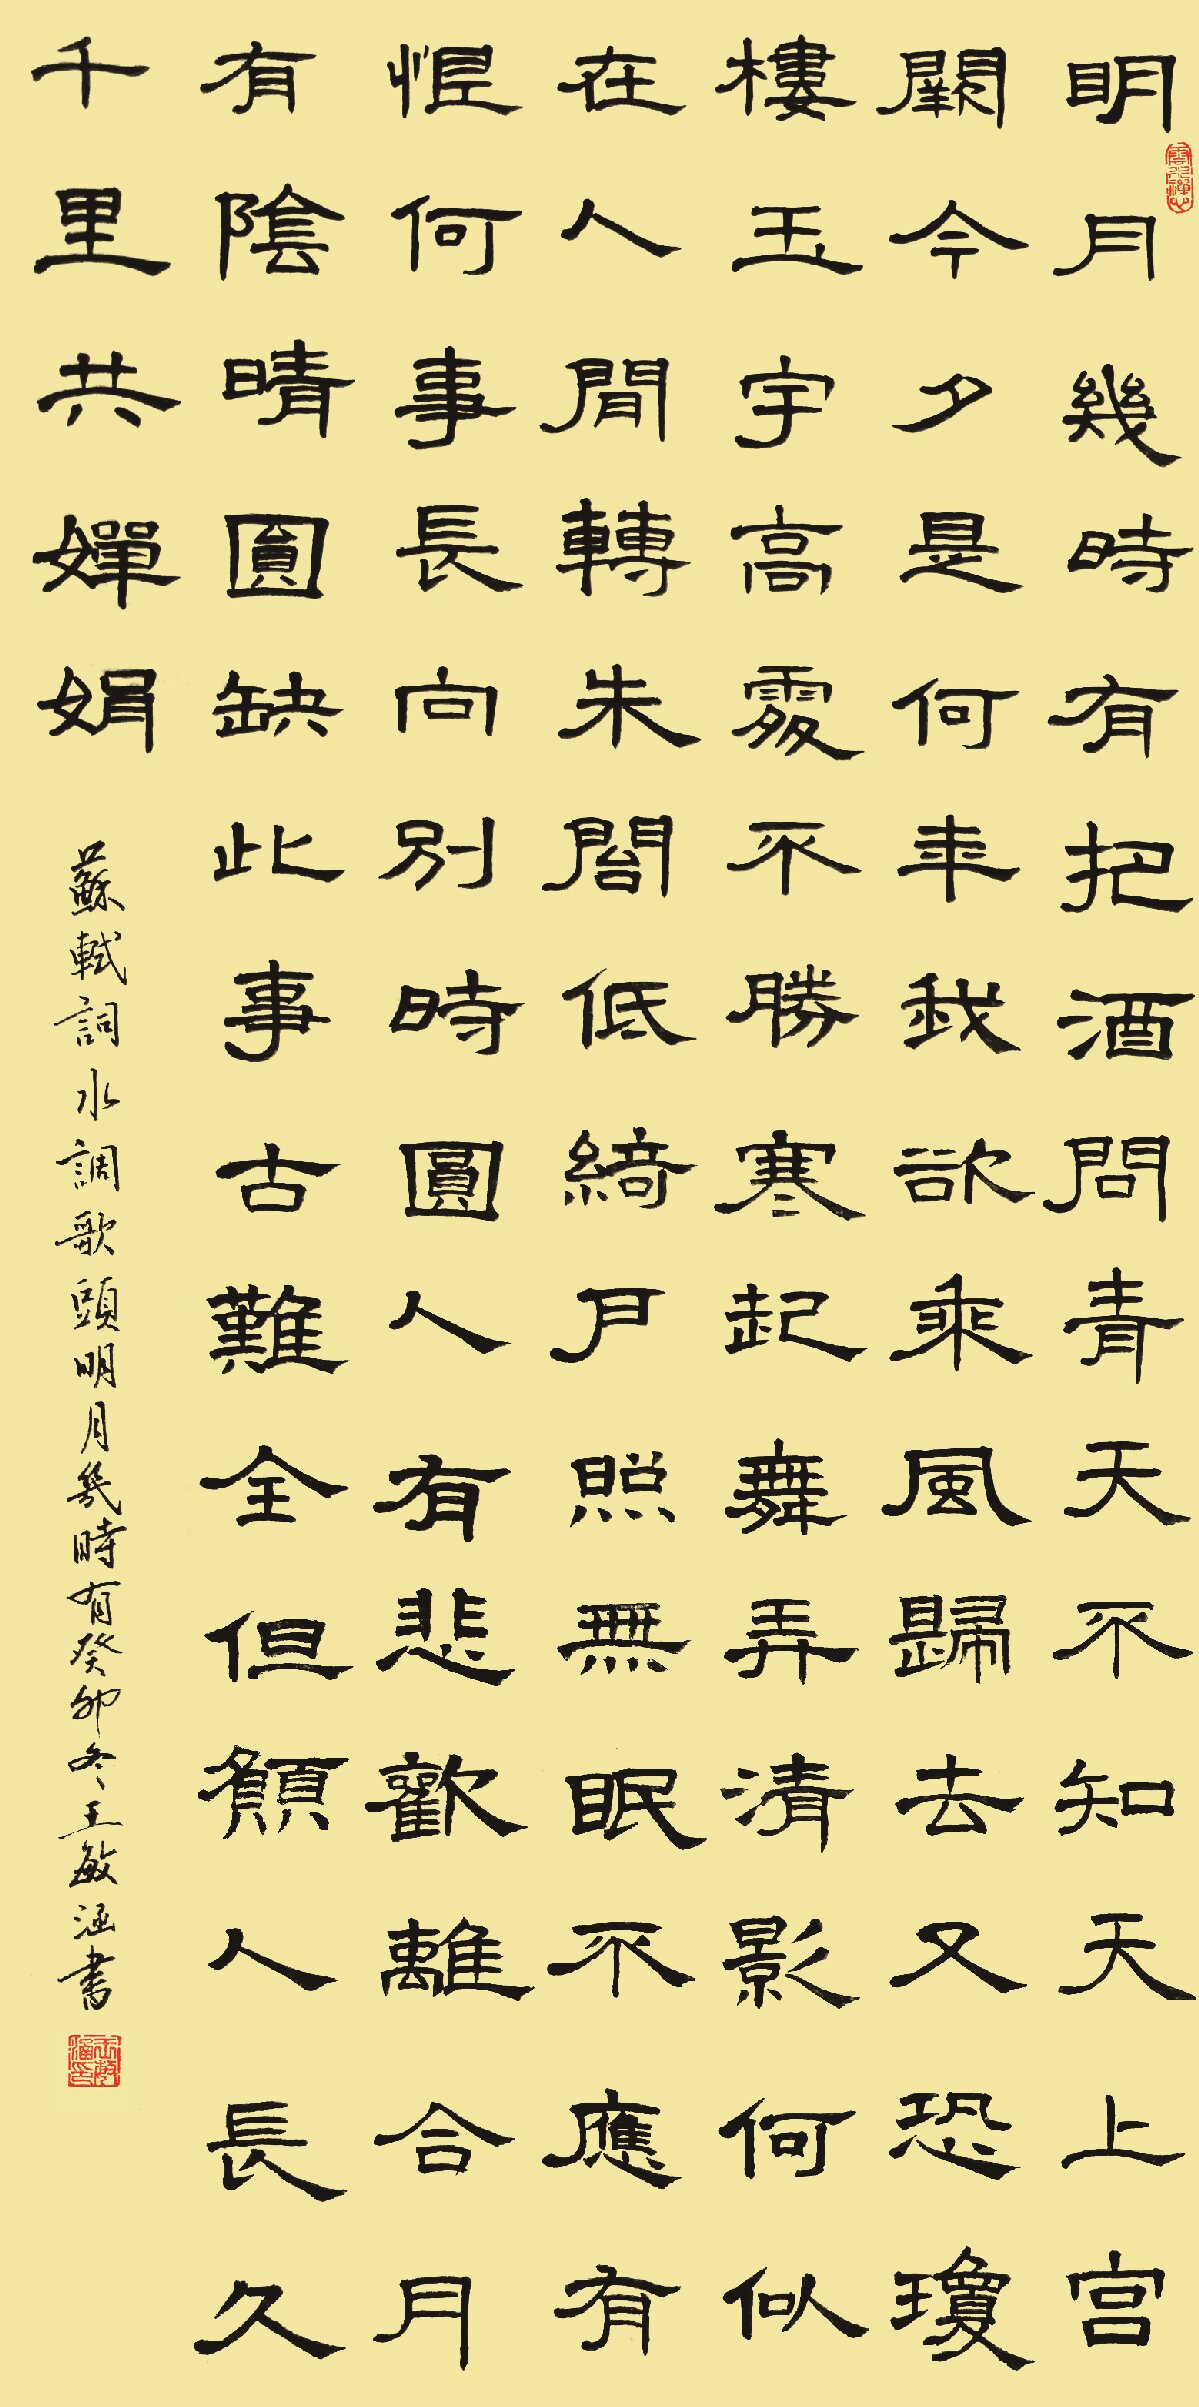 明月幾時有把酒問青天不知天上宫
闕今夕是何年我欲乘風歸去又恐瓊
樓玉宇高處不勝寒起舞弄清影何似
在人間轉朱閤低綺戶照無眠不應有
恨何事長向別時圓人有悲歡離合月
有陰晴圓缺此事古難全但願人長久
千里共嬋娟
蘇軾詞水調歌頭明月幾時有癸卯冬王敏涵書